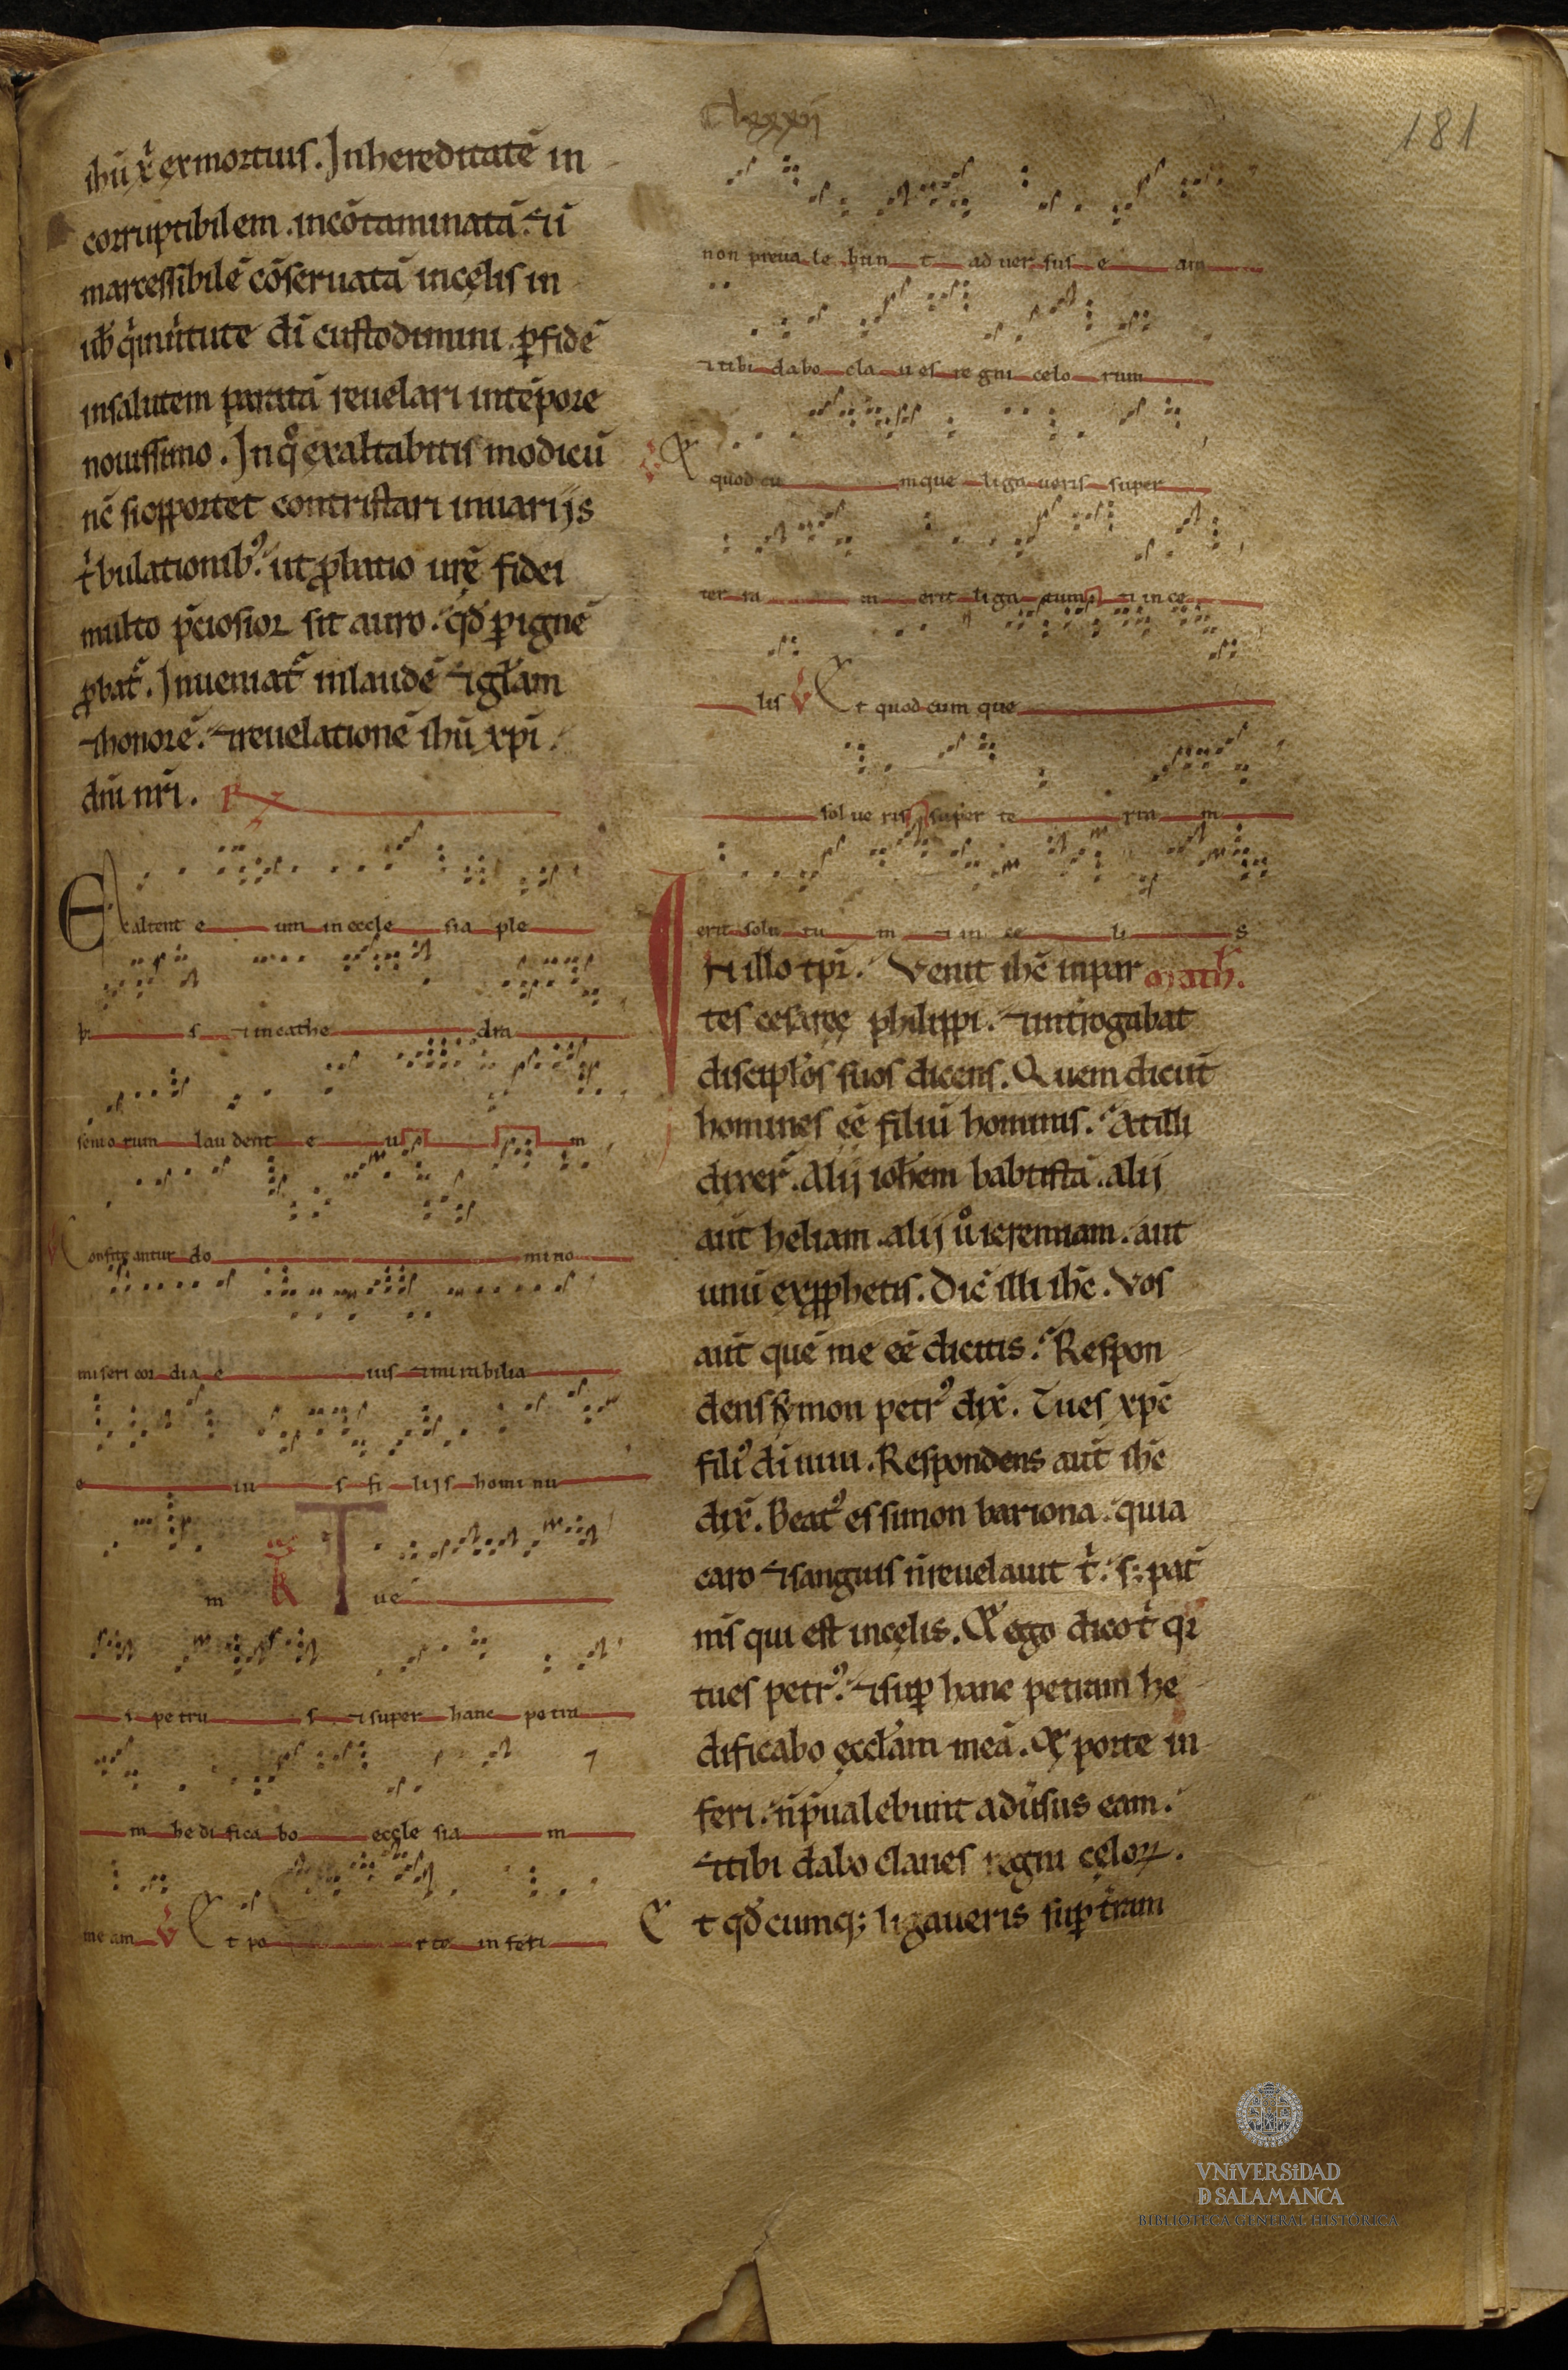 clxxxij
181
ihū xp̄i ex mortuis. Inhereditatē in
corruptibilem. incōtaminatā. ⁊ ī
marcessibilē cōseruatā incęlis in
uob̄ q̇ inuirtute dī custodimini. ꝑ fidē
insalutem paratā reuelari intēpore
nouissimo. In qͦ exaltabitis modicū
nc̄ si opportet contristari inuarijs
tͥbulationibꝰ. ut ꝓbatio urę̄ fidei
multo p̄ciosior sit auro. qd̄ ꝑ ignē
ꝓbat᷑. Inueniat᷑ inlaudē ⁊ gl̄am
⁊ honorē. ⁊ reuelationē ihū xp̄i
dn̄i nr̄i.
Exaltent e um in eccle sia ple
bi s ⁊ in cathe dra
senio rum lau dent e u m
Confite antur do mi no
miseri cor dia e ius ⁊ mirabilia
e iu s fi lijs homi nu
m R Tu e
s petru s ⁊ super hanc petra
m hedi fica bo eccle sia m
me am V Et po rte inferi
non preua le bun t ad uer sus e am
⁊ tibi dabo cla u es re gni celo rum
V Et quod cu mque liga ueris super
ter ra m erit liga tum ⁊ in ce
lis V Et quod cum que
sol ue ris super te rra m
erit solu tu m ⁊ in ce li s
IN illo tp̄r. Venit ihc̄ inpar math̄.
tes cesaręę philippi. ⁊ int̄rogabat
discipl̄os suos dicens. Quem dicūt
homines ee̅ filiū hominis. At illi
dixer̄. Alij ioh̄em babtistā. alij
aut̄ heliam. alij uͦ ieremiam. aut
unū ex ꝓphetis. Dic̄ illi ihc̄. Vos
aut̄ quē me ee̅ dicitis. Respon
dens symon petrꝰ dix̄. Tu es xp̄c
filiꝰ dī uiui. Respondens aut̄ ihc̄
dix̄. Beatꝰ es simon bariona. quia
caro ⁊ sanguis n̄ reuelauit tͥ. s; pat̄
m̄s qui est incęlis. Et ego dico tͥ qr
tu es petrꝰ. ⁊ suꝑ hanc petram he
dificabo ęccl̄am meā. Et porte in
feri. n̄ p̄ualebunt adūsus eam.
⁊ tibi dabo claues regni cęloꝝ.
Et qd̄ cumq; ligaueris suꝑ t̄ram
VNiVERSiDAD
D SALAMANCA
BIBLIOTECA GENERAL HISTÓRICA